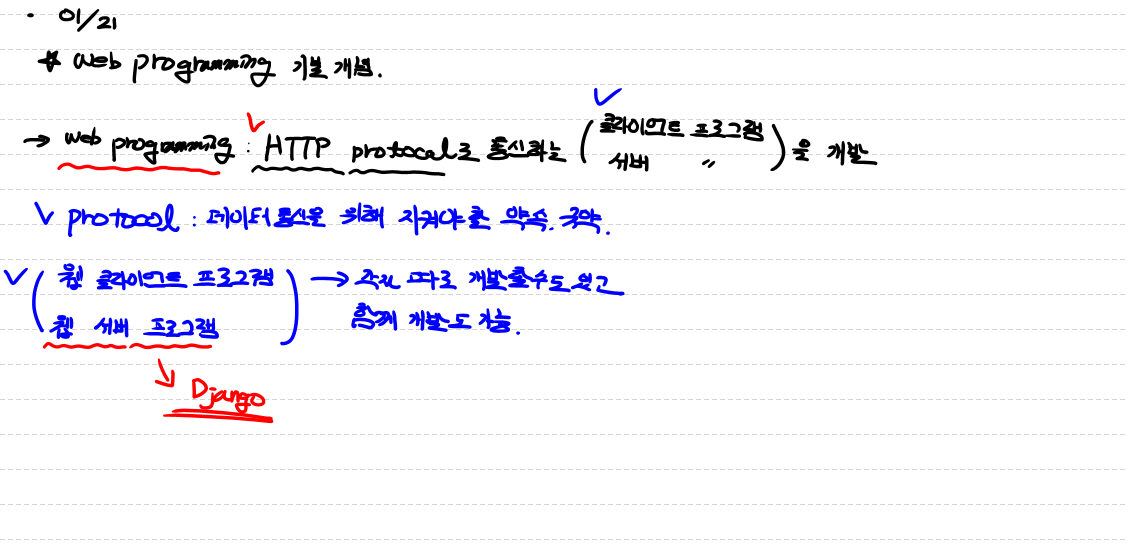 · 01/21
☆ web programming 기본 개념.
→ web programming : HTTP protocol로 통신하는 (클라이언트 프로그램
서버 〃 )을 개발
✓ protocol : 데이터 통신을 위해 지켜야 할 약속. 규약.
✓ (웹 클라이언트 프로그램 → 각각 따로 개발할수도 있고
웹 서버 프로그램) 함께 개발도 가능.
↘ Django